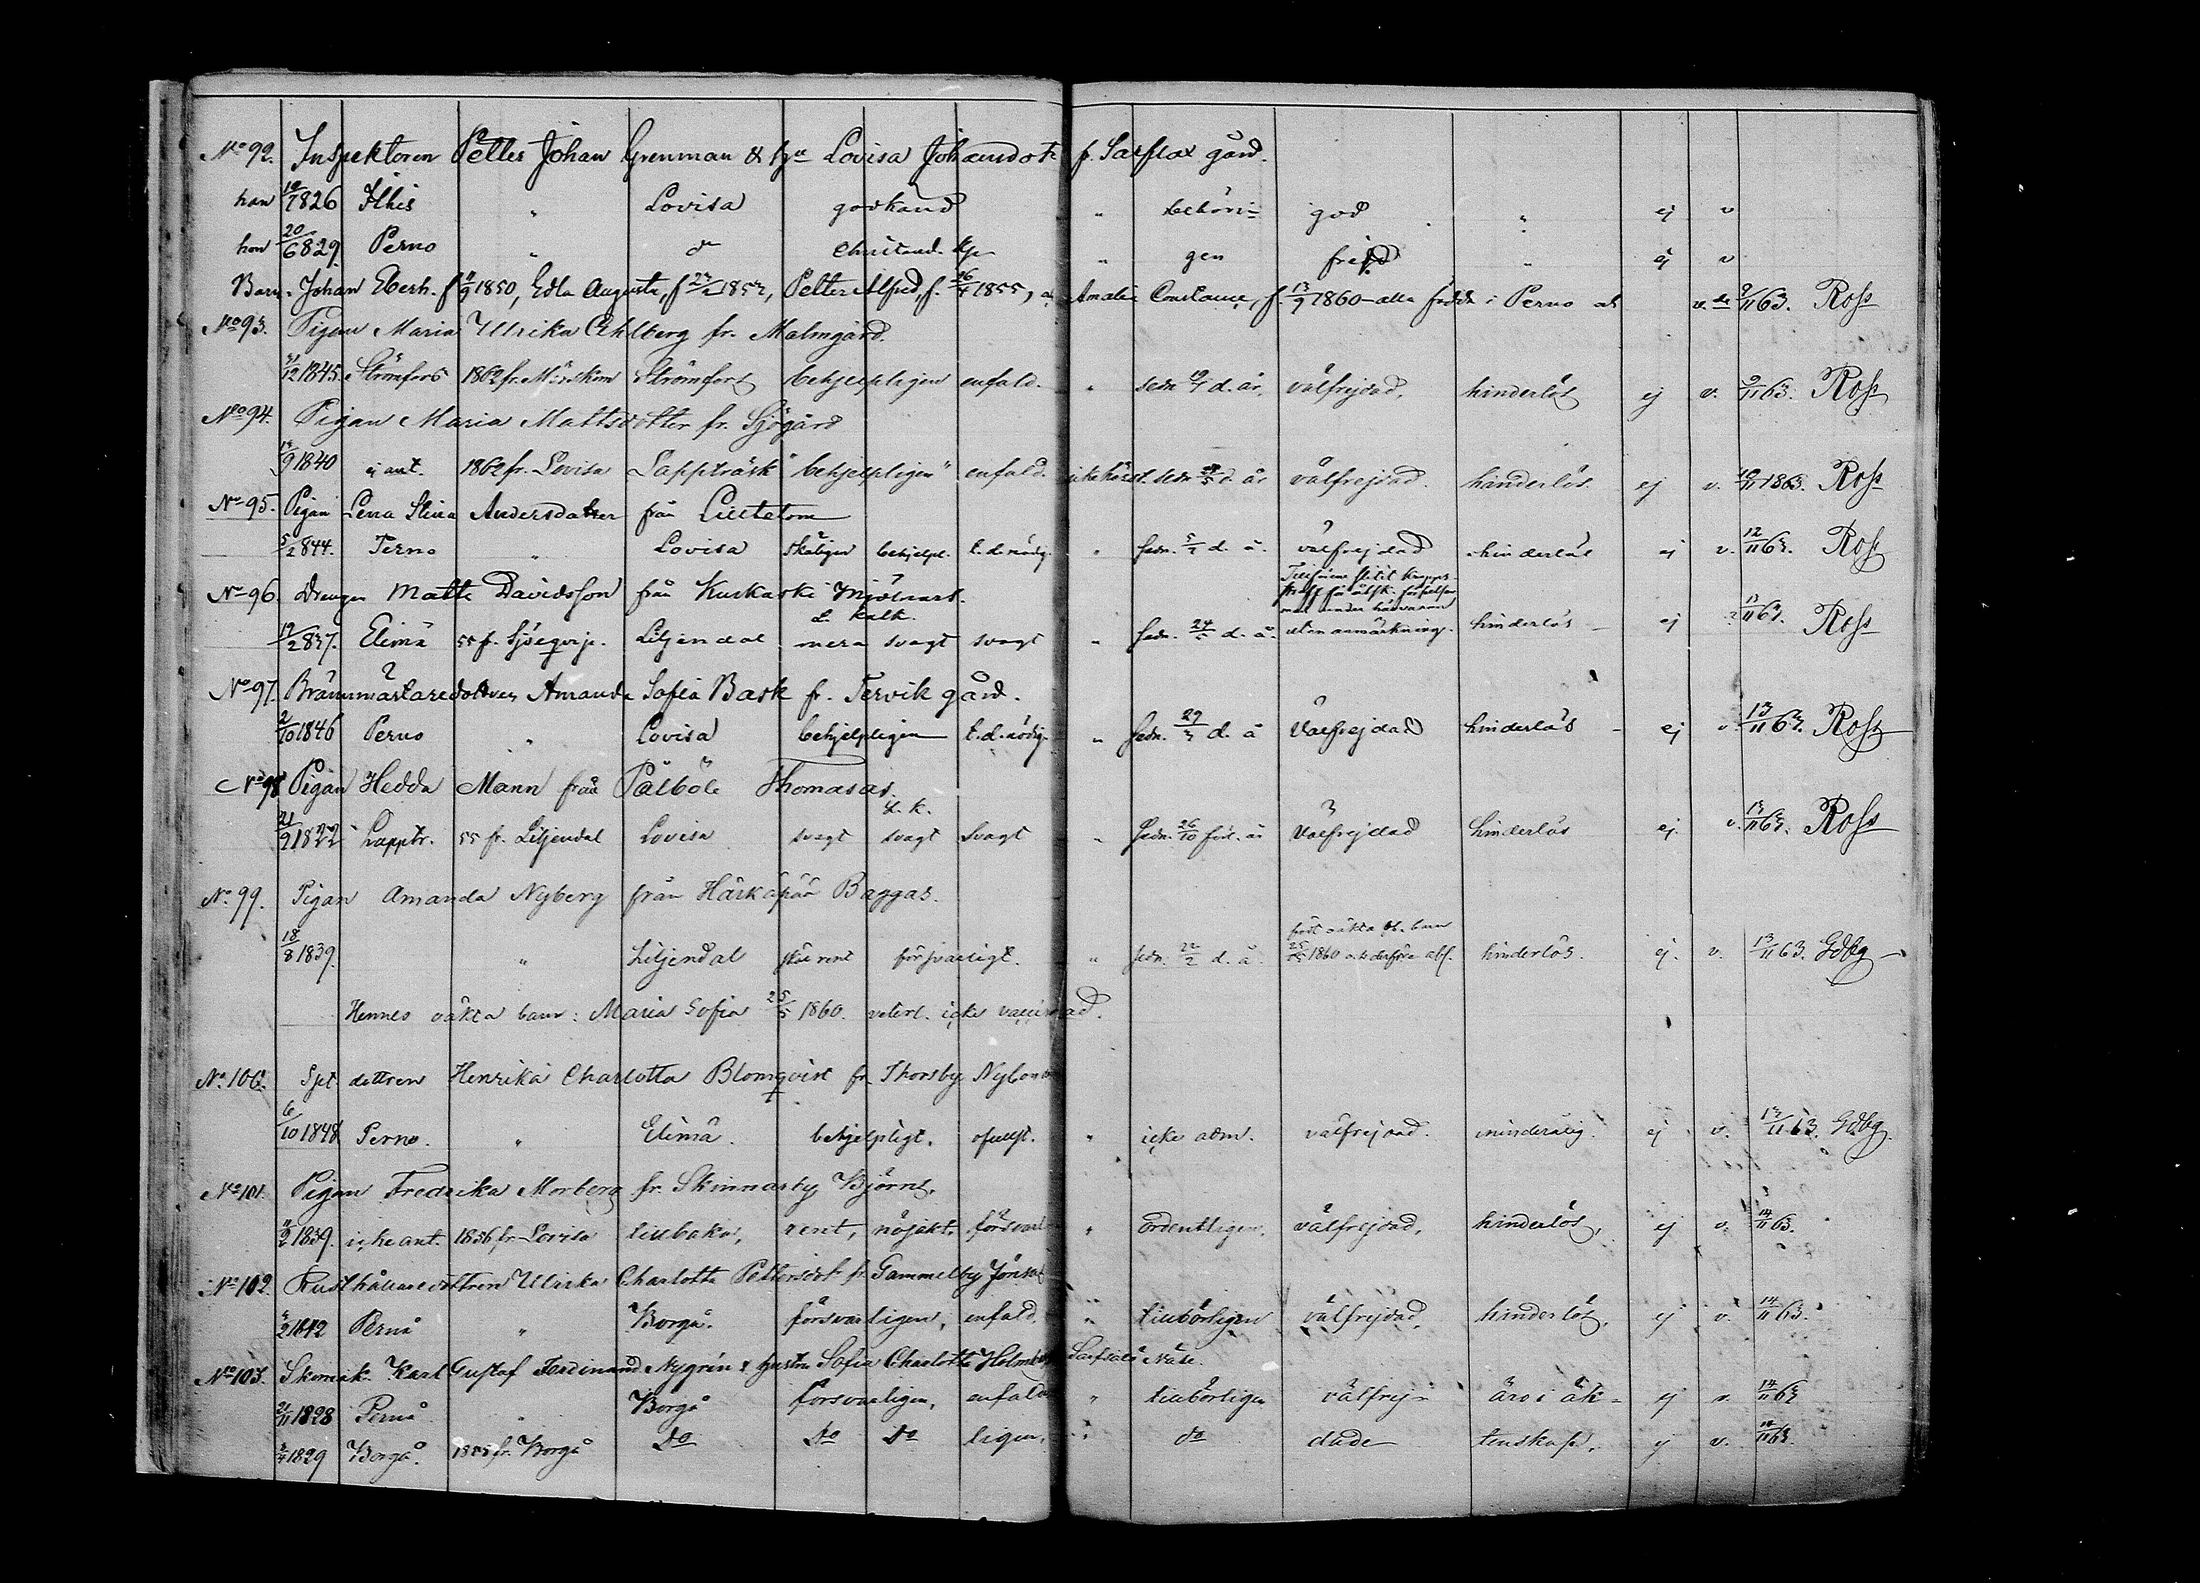 No 92. Inspektoren Petter Johan Grenman & h:u Lovisa Johansdotr fr. Sarflax gård.
han 1826 Lovisa godkänd " behöri= god " ej v
hon 20/6 829. Perno " do Christend. " gen frejd " ej v
Barn: Johan Eberh. f. 1850, Edla Augusta, f. 1852, Petter Alfred, f. 26/4 1855, Amalia Constance, f. 13/9 1860 - alla födde i Perno 9/11 63. Ross
No 93. Pigan Maria Ulrika Ahlberg fr. Malmgård.
31/12 1845. Strömfors 1862 fr. Mörskom Strömfors behjelpligen enfald. " sedn. d. år, välfrejdad, hinderlös ej v. 9/11 63. Ross
No 94. Pigan Maria Mattsdotter fr. Sjögård
9 1840 ej ant. 1862 fr. Lovisa Lappträsk behjelpligen enfald. sedn. d. år välfrejdad. hinderlös. ej v. 10/11 1863. Ross
No 95. Pigan Lena Stina Andersdotter från Lilltetom
5/2 844. Perno " Lovisa skäligen behjelpl. t. d. nödig. " sedn. d. å. välfrejdad hinderlös ej v. 12/11 63. Ross
No 96. Drengen Matts Davidsson från Kuskaski Mjölnars.
L. kalk.
19/2 837. Elimä 55 fr. Liljendal mera svagt svagt " sedn. 24 d. å. utan anmärkning. hinderlös - ej 13/11 63. Ross
No 97. Brännmästaredottren Amanda Sofia Bask fr. Tervik gård.
2/10 1846 Perno " Lovisa behjelpligen t. d. nödig. " sedn. 29 d. å välfrejdad hinderlös - ej v. 13/11 63. Ross
No 98 Pigan Hedda Mann från Pålböle Thomasas.
L. k.
21/9 1822 Lapptr. 55 fr. Liljendal Lovisa svagt svagt svagt " sedn. 26/10 förl. år välfrejdad hinderlös ej v. 13/11 63. Ross
No 99. Pigan Amanda Nyberg från Härkäpää Baggas.
födt oäkta barn
18/8 1839. " Liljendal rent försvarligt. " sedn. 22/2 d. å. 25/5 1860 o. derföre abs. hinderlös. ej. v. 13/11 63. Gdbg
Hennes oäkta barn: Maria Sofia 25/5 1860. veterl. icke vaccinerad.
No 100. Spt. dottren Henrika Charlotta Blomqvist fr. Thorsby
6/10 1848 Perno. " Elimä. behjelpligt. " icke adm. välfrejdad. minderårig. ej v. 13/11 63. Gdbg.
No 101. Pigan Fredrika Morberg fr. Skinnarby Björns.
11/9 1839. icke ant. 1856 fr. Lovisa tillbaka, rent, nöjakt. försvarl " ordentligen. välfrejdad, hinderlös, ej v. 14/11 63.
No 102. Rusthållaredottren Ulrika Charlotta Pettersdotr fr. Gammelby Jönsas
1842 Pernå " Borgå. försvarligen, enfald. " tillbörligen välfrejdad, hinderlös, ej v. 14/11 63.
No 103. Skomak. Karl Gustaf Ferdinand Nygrén & hustru Sofia Charlotta Holmberg Sarfsalö Näse.
21/11 1828 Pernå " Borgå försvarligen, enfald " tillbörligen välfrej= äro i äk= ej v. 14/11 63
1829 Borgå. 1855 fr. Borgå Do Do Do ligen, " do dade tenskap, ej v. 14/11 63.